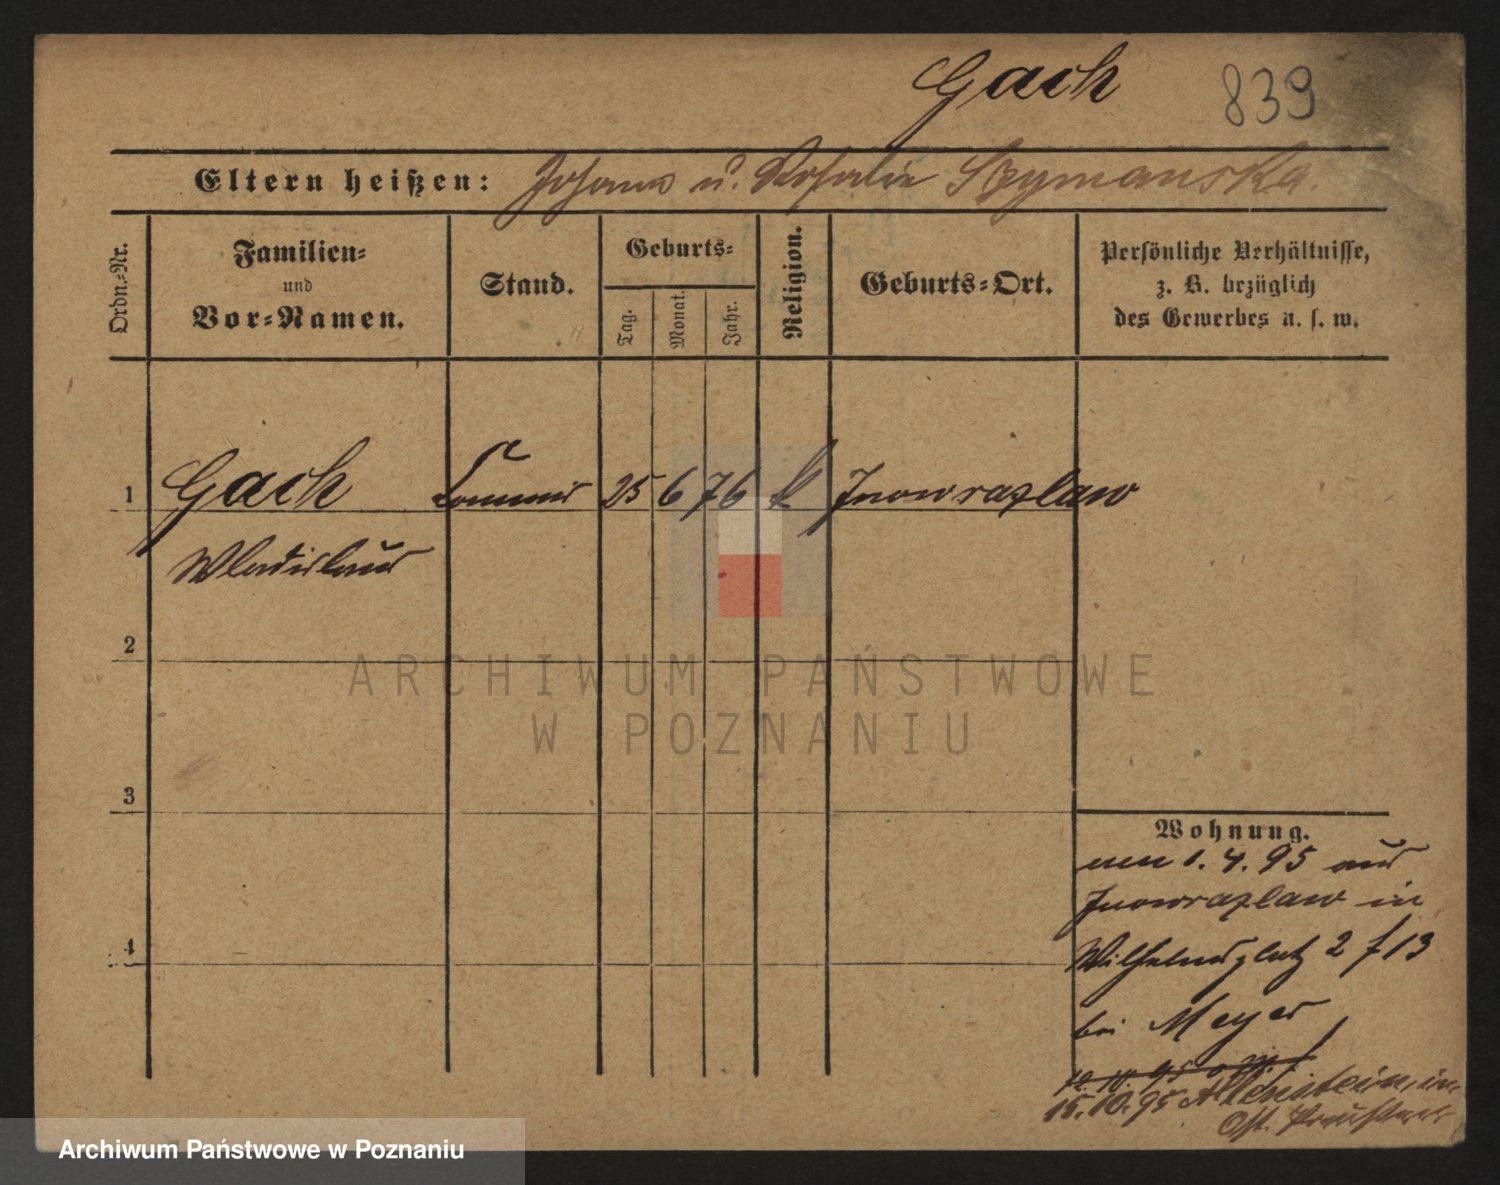 Gach 839
Eltern heißen: Johann u. Rosalie Szymanska.
Ordn.-Nr.
Familien-
und
Vor-Namen.
Stand.
Geburts-
Tag.
Monat.
Jahr.
Religion.
Geburts-Ort.
Persönliche Verhältnisse,
z. B. bezüglich
des Gewerbes u. s. w.
1 Gach Commis 25 6 76 k Inowrazlaw
Wladislaus
2
3
4
Wohnung.
1. 4. 95 aus
Inowrazlaw in
Wilhelmsplatz 2 f 13
bei Meyer
12. 10. 95
15. 10. 95 Allenstein, in
Ost. Preußen
ARCHIWUM PAŃSTWOWE
W POZNANIU
Archiwum Państwowe w Poznaniu